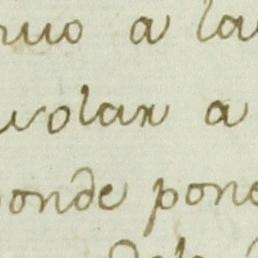 ruo a la
volar a
ponde pone